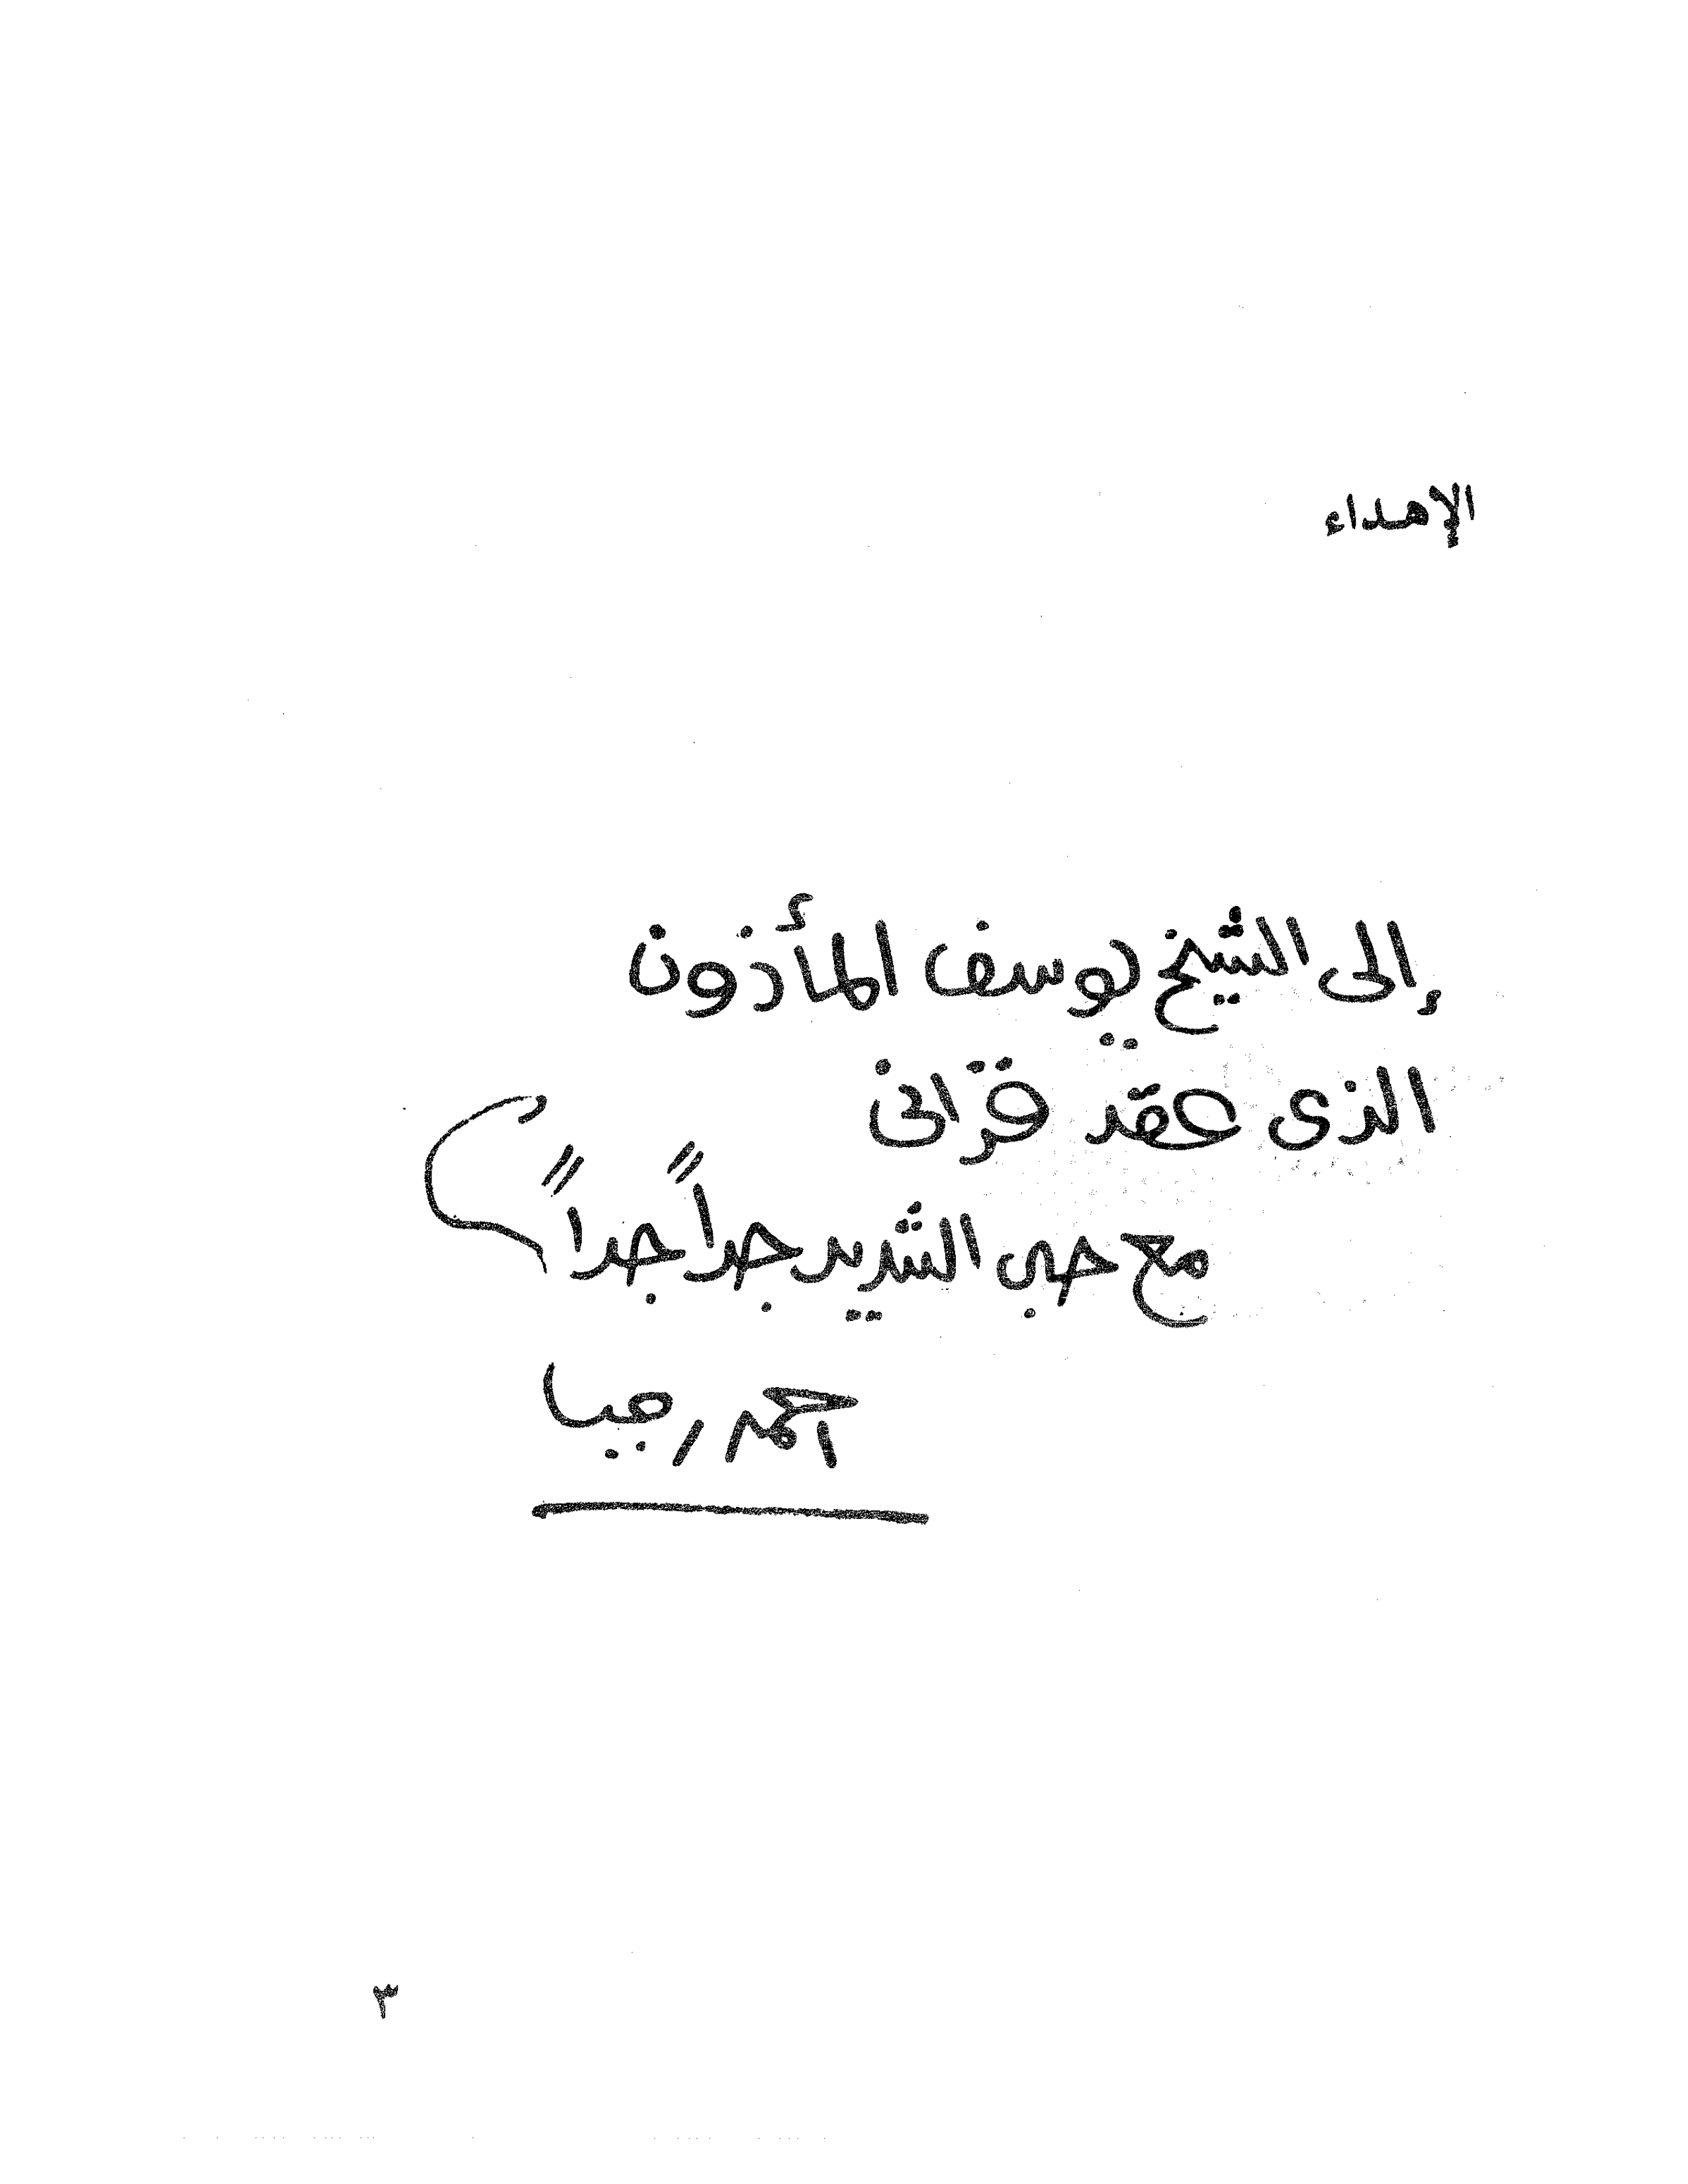 الإهداء
إلى الشيخ يوسف المأذون
الذى عقد قرانى
مع حبى الشديد جداً جداً
احمد رجب
٣